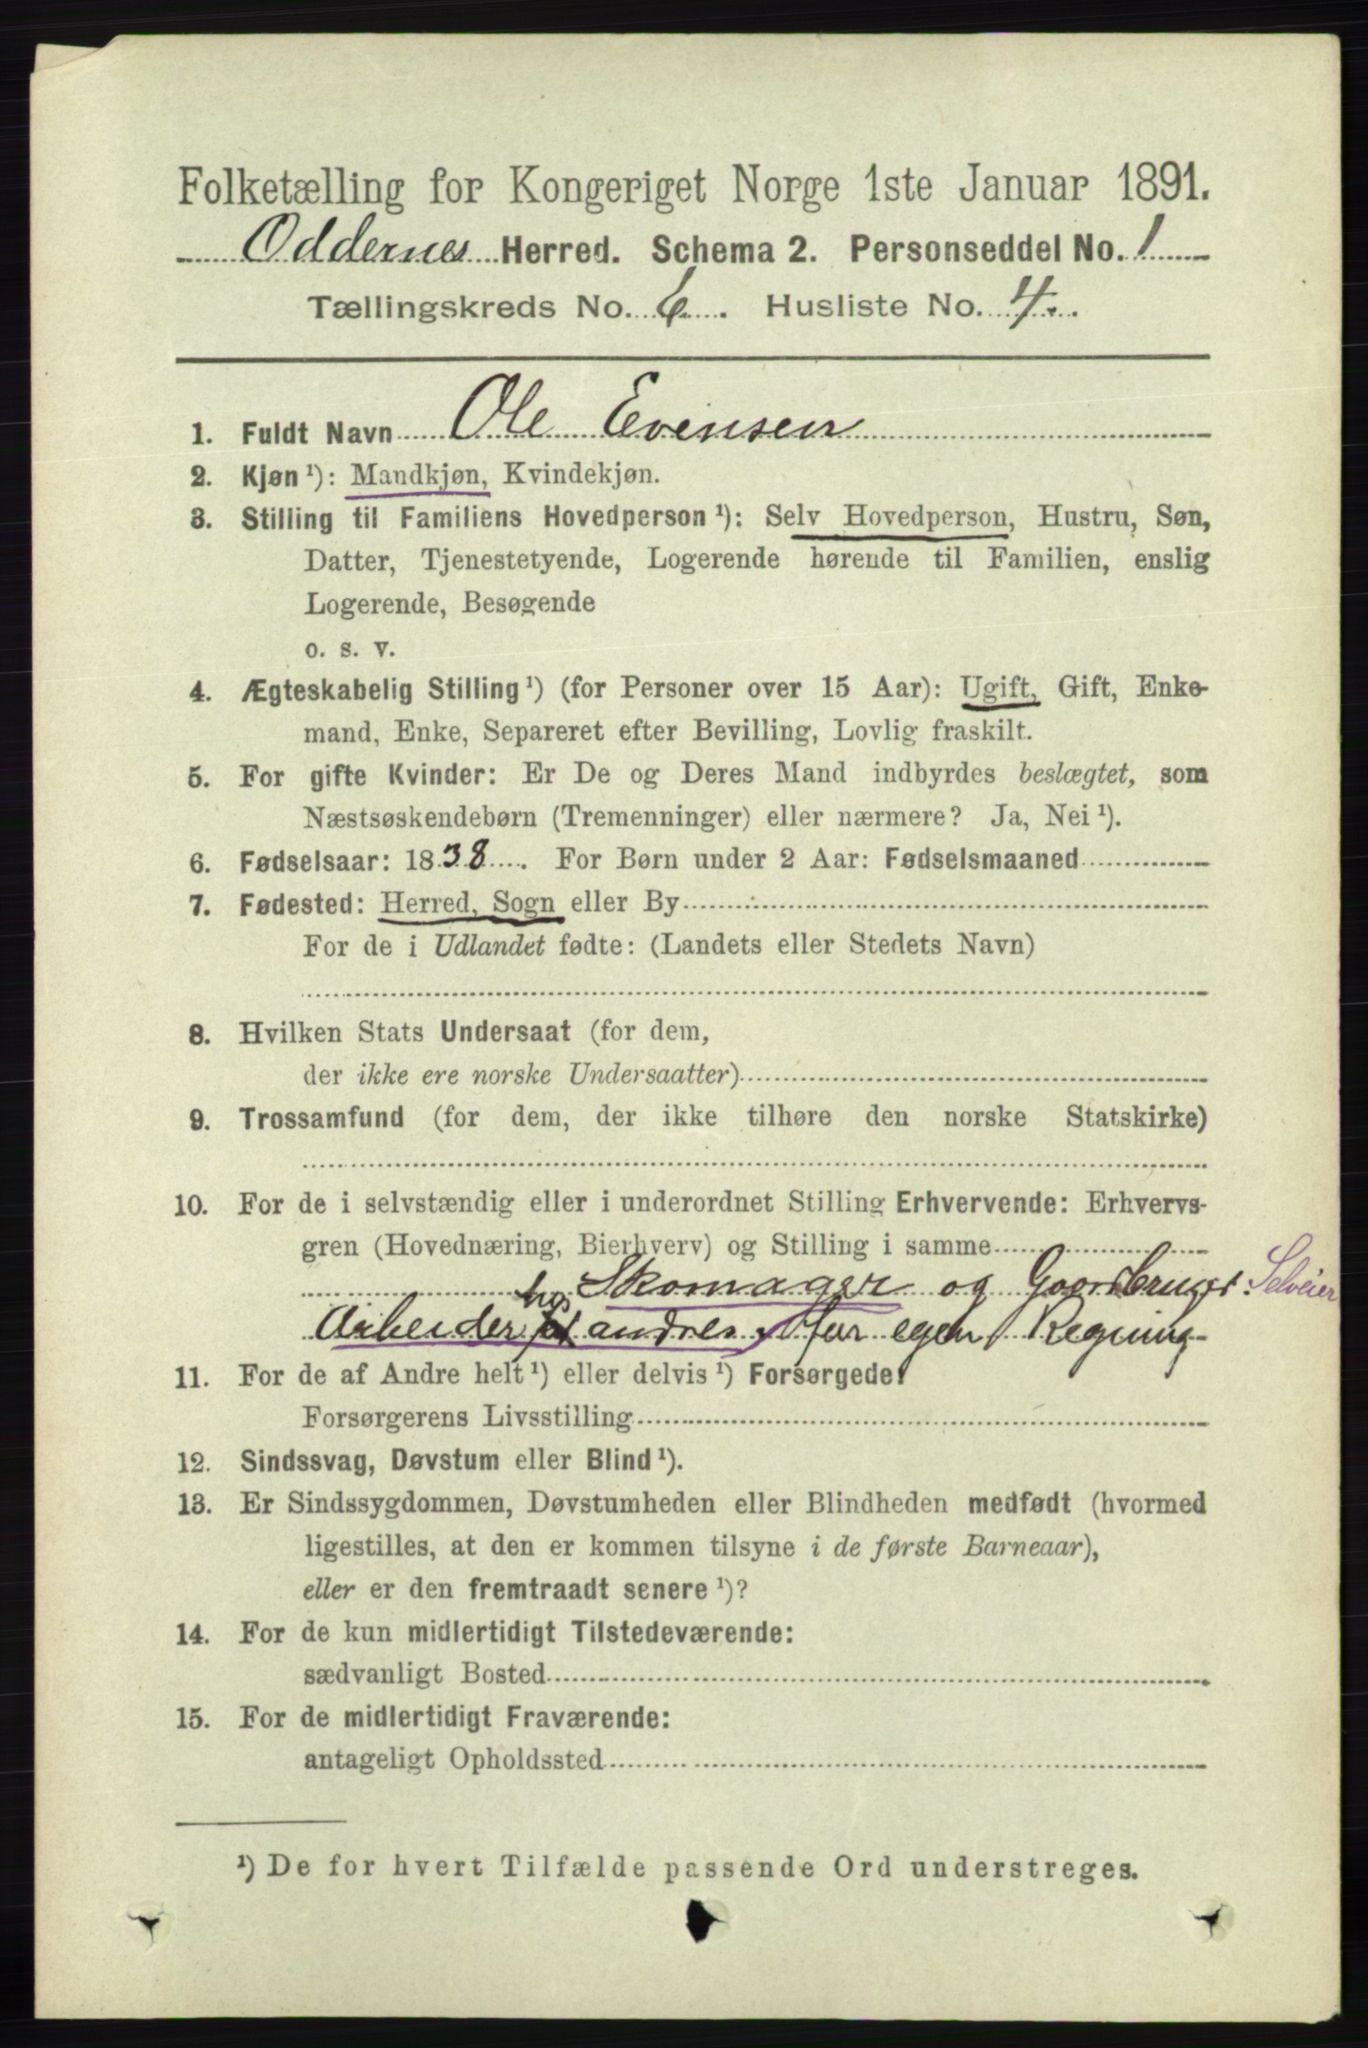 Folketælling for Kongeriget Norge 1ste Januar 1891.
Oddernes Herred. Schema 2. Personseddel No. 1
Tællingskreds No. 6. Husliste No. 4.
1. Fuldt Navn Ole Evensen
2. Kjøn ¹): Mandkjøn, Kvindekjøn.
3. Stilling til Familiens Hovedperson ¹): Selv Hovedperson, Hustru, Søn,
Datter, Tjenestetyende, Logerende hørende til Familien, enslig
Logerende, Besøgende
o. s. v.
4. Ægteskabelig Stilling ¹) (for Personer over 15 Aar): Ugift, Gift, Enke-
mand, Enke, Separeret efter Bevilling, Lovlig fraskilt.
5. For gifte Kvinder: Er De og Deres Mand indbyrdes beslægtet, som
Næstsøskendebørn (Tremenninger) eller nærmere? Ja, Nei ¹).
6. Fødselsaar: 1838. For Børn under 2 Aar: Fødselsmaaned
7. Fødested: Herred, Sogn eller By
For de i Udlandet fødte: (Landets eller Stedets Navn)
8. Hvilken Stats Undersaat (for dem,
der ikke ere norske Undersaatter)
9. Trossamfund (for dem, der ikke tilhøre den norske Statskirke)
10. For de i selvstændig eller i underordnet Stilling Erhvervende: Erhvervs-
gren (Hovednæring, Bierhverv) og Stilling i samme
Skomager og Gaardbruger. Selveier
Arbeider hos andre, for egen Regning
11. For de af Andre helt ¹) eller delvis ¹) Forsørgede:
Forsørgerens Livsstilling
12. Sindssvag, Døvstum eller Blind ¹).
13. Er Sindssygdommen, Døvstumheden eller Blindheden medfødt (hvormed
ligestilles, at den er kommen tilsyne i de første Barneaar),
eller er den fremtraadt senere ¹)?
14. For de kun midlertidigt Tilstedeværende:
sædvanligt Bosted
15. For de midlertidigt Fraværende:
antageligt Opholdssted
¹) De for hvert Tilfælde passende Ord understreges.